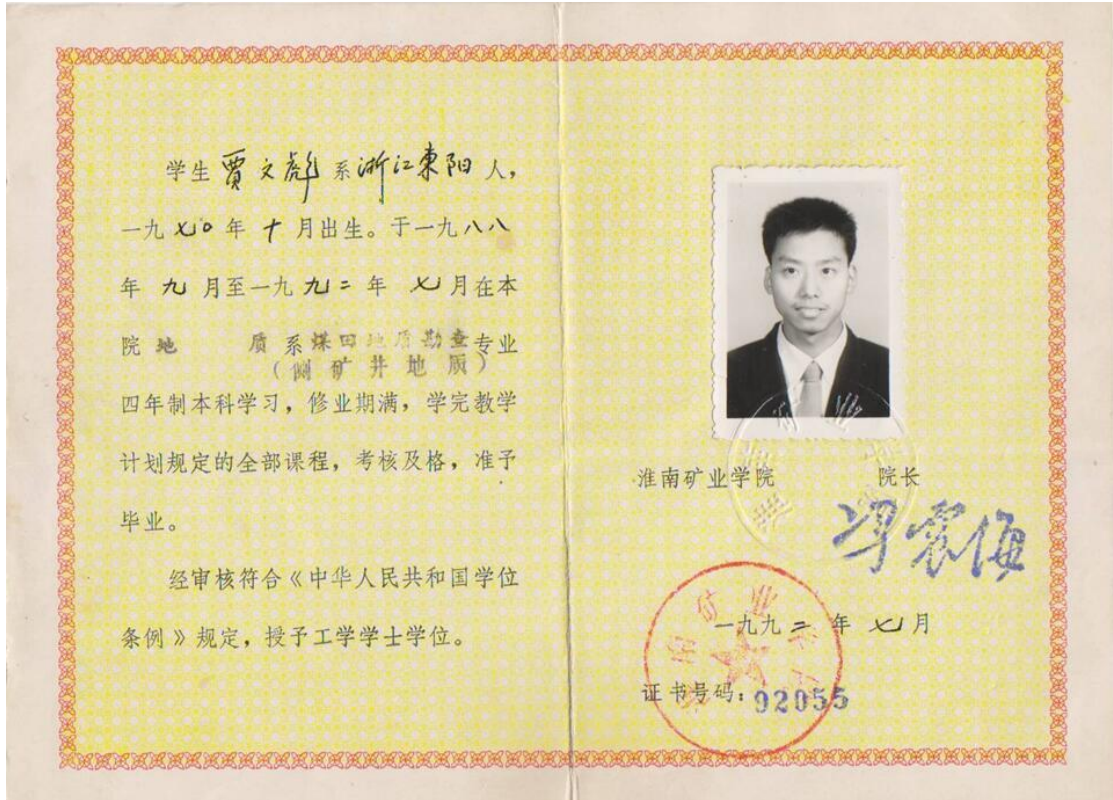 学生 贾文彪 系 浙江東阳 人，
一九七〇年十月出生。于一九八八
年九月至一九九二年七月在本
院 地 质 系 煤田地质勘查 专业
（侧矿井地质）
四年制本科学习，修业期满，学完教学
计划规定的全部课程，考核及格，准予
毕业。
经审核符合《中华人民共和国学位
条例》规定，授予工学学士学位。
淮南矿业学院 院长
震海
一九九二年七月
证书号码：92055
淮南矿业学院